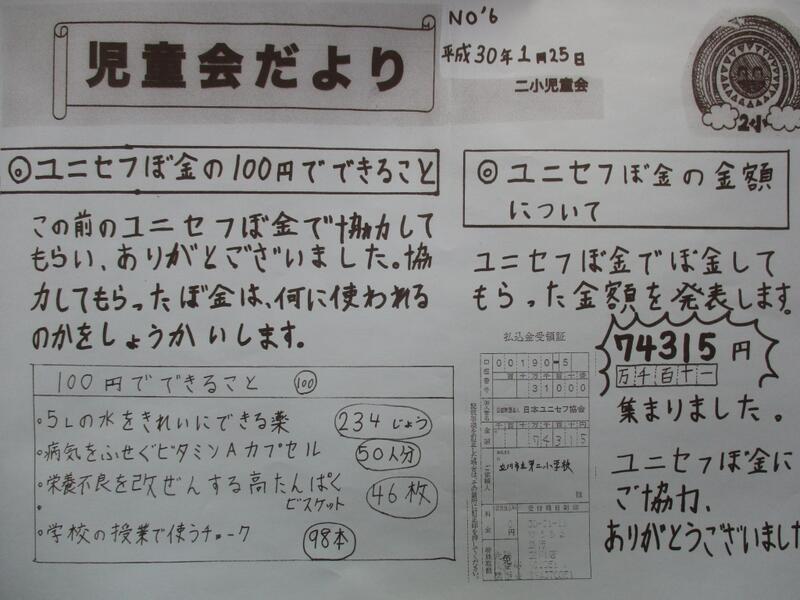 児童会だより
NO'6
平成30年1月25日
二小児童会
2小
◎ユニセフぼ金の100円でできること
この前のユニセフぼ金で協力して
もらい、ありがとございました。協
力してもらったぼ金は、何に使われる
のかをしょうかいします。
100円でできること 100
・5Lの水をきれいにできる薬 234じょう
・病気をふせぐビタミンAカプセル 50人分
・栄養不良を改ぜんする高たんぱく
ビスケット 46枚
・学校の授業で使うチョーク 98本
◎ユニセフぼ金の金額
について
ユニセフぼ金でぼ金して
もらった金額を発表します。
74315円
万千百十一
集まりました。
払込金受領証
00190-5
31000
日本ユニセフ協会
74315
立川市立第二小学校
料金
ユニセフぼ金に
ご協力、
ありがとうございました